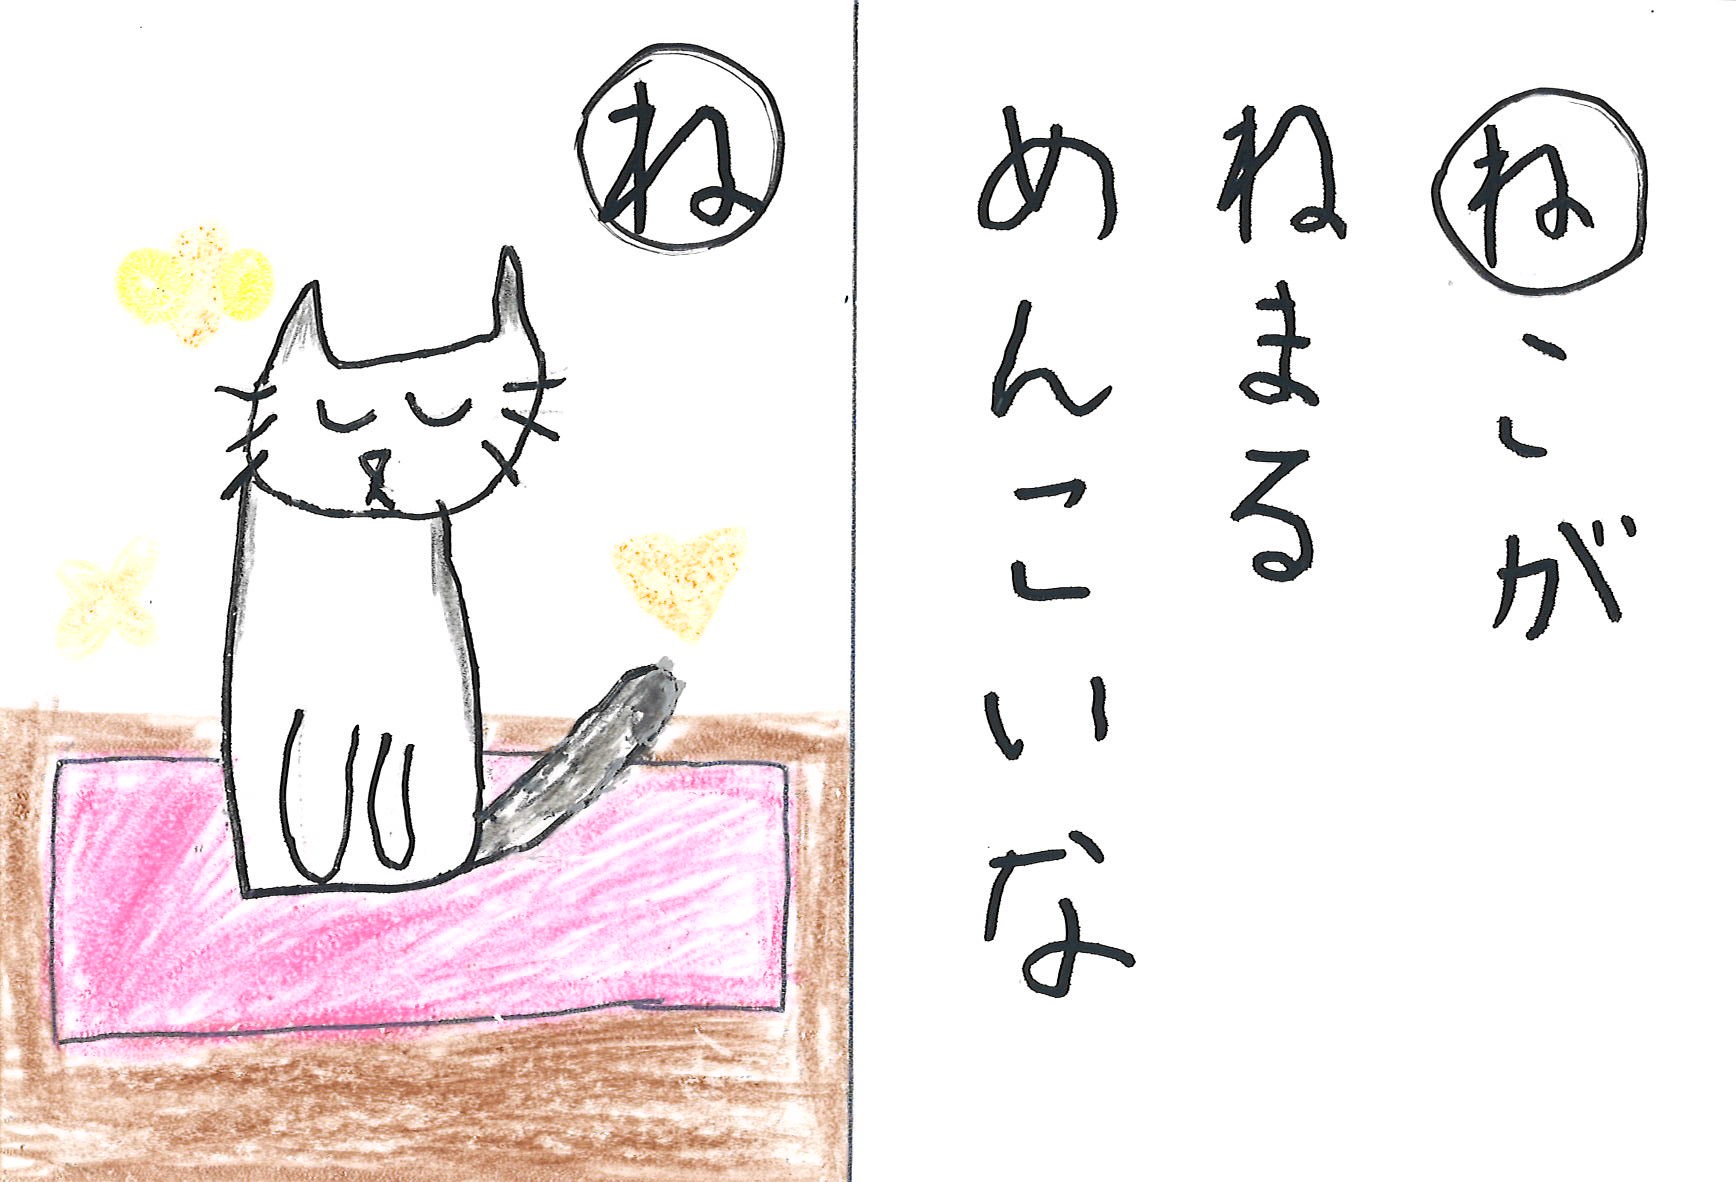 ね
ねこが
ねまる
めんこいな